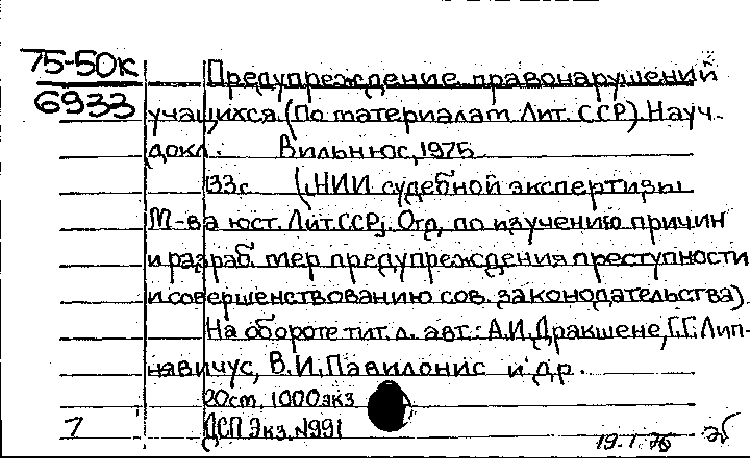 75-50к
6933
Предупреждение правонарушений
учащихся. (По материалам Лит. ССР). Науч.
докл. Вильнюс, 1975
133с (НИИ судебной экспертизы
М-ва юст. Лит ССР,. Отд. по изучению причин
и разраб. мер предупреждения преступности
и совершенствованию сов. законодательства)
На обороте тит. л. авт.: А.И. Дракшене, Г.Г. Лип-
навичус, В.И. Павилонис и др.
20см. 1000экз
ДСП Экз. №991
7
19.1.76